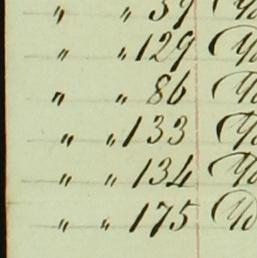 " " 39
" " 129
" " 86
" " 133
" " 134
" " 175